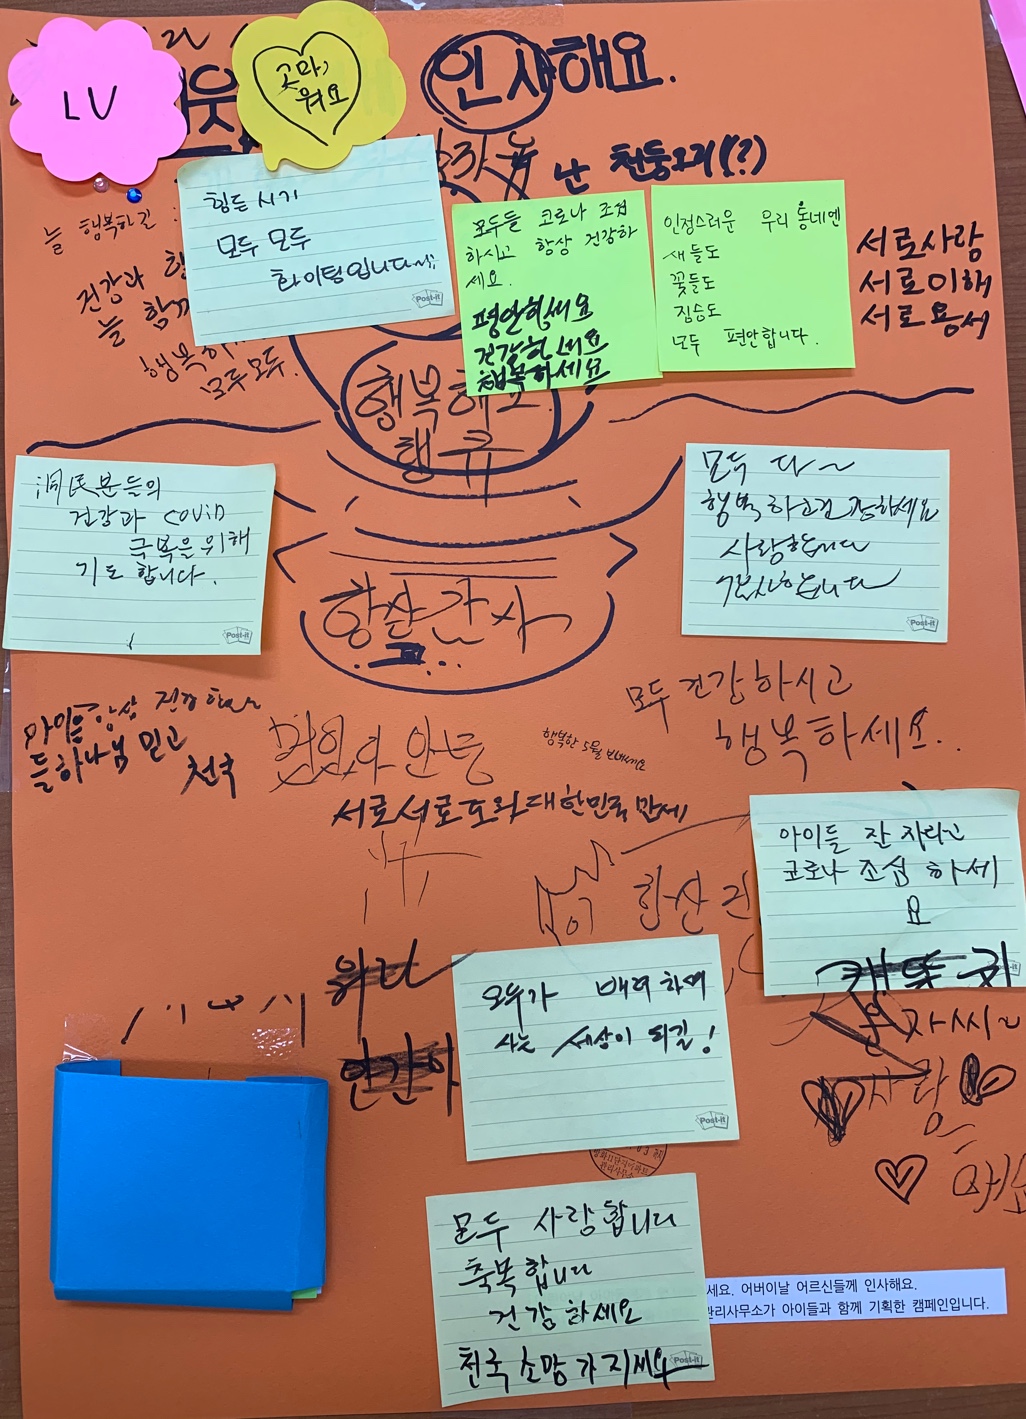 인사해요.
LV
곳마,
워요
난 천둥오리(?)
힘든시기
모두 모두
화이팅입니다~
Post-it
모두들 코로나 조심
하시고 항상 건강하
세요.
평안하세요
건강하세요
행복하세요
인정스러운 우리 동네엔
새들도
꽃들도
짐승도
모두 편안합니다.
서로사랑
서로이해
서로용서
늘 행복하길
건강과
늘 함께
행복하
모두모두.
행복해요.
행큐
洞民분들의
건강과 COViD
극복을 위해
기도 합니다.
Post-it
모두 다~
행복하고건강하세요
사랑합니다
감사합니다
Post-it
항상감사
아이들 항상 건강하
들하나님 믿고
천국
행복한 5월 보내세요
모두건강하시고
행복하세요..
서로서로도와대한민국만세
아이들 잘 자라고
코로나 조심 하세
요
항상 건
우리
모두가 배려하며
사는 세상이 되길!
Post-it
인간아
사랑
해요
모두 사랑합니다
축복합니다
건강하세요
천국소망가지세요
Post-it
세요. 어버이날 어르신들께 인사해요.
관리사무소가 아이들과 함께 기획한 캠페인입니다.